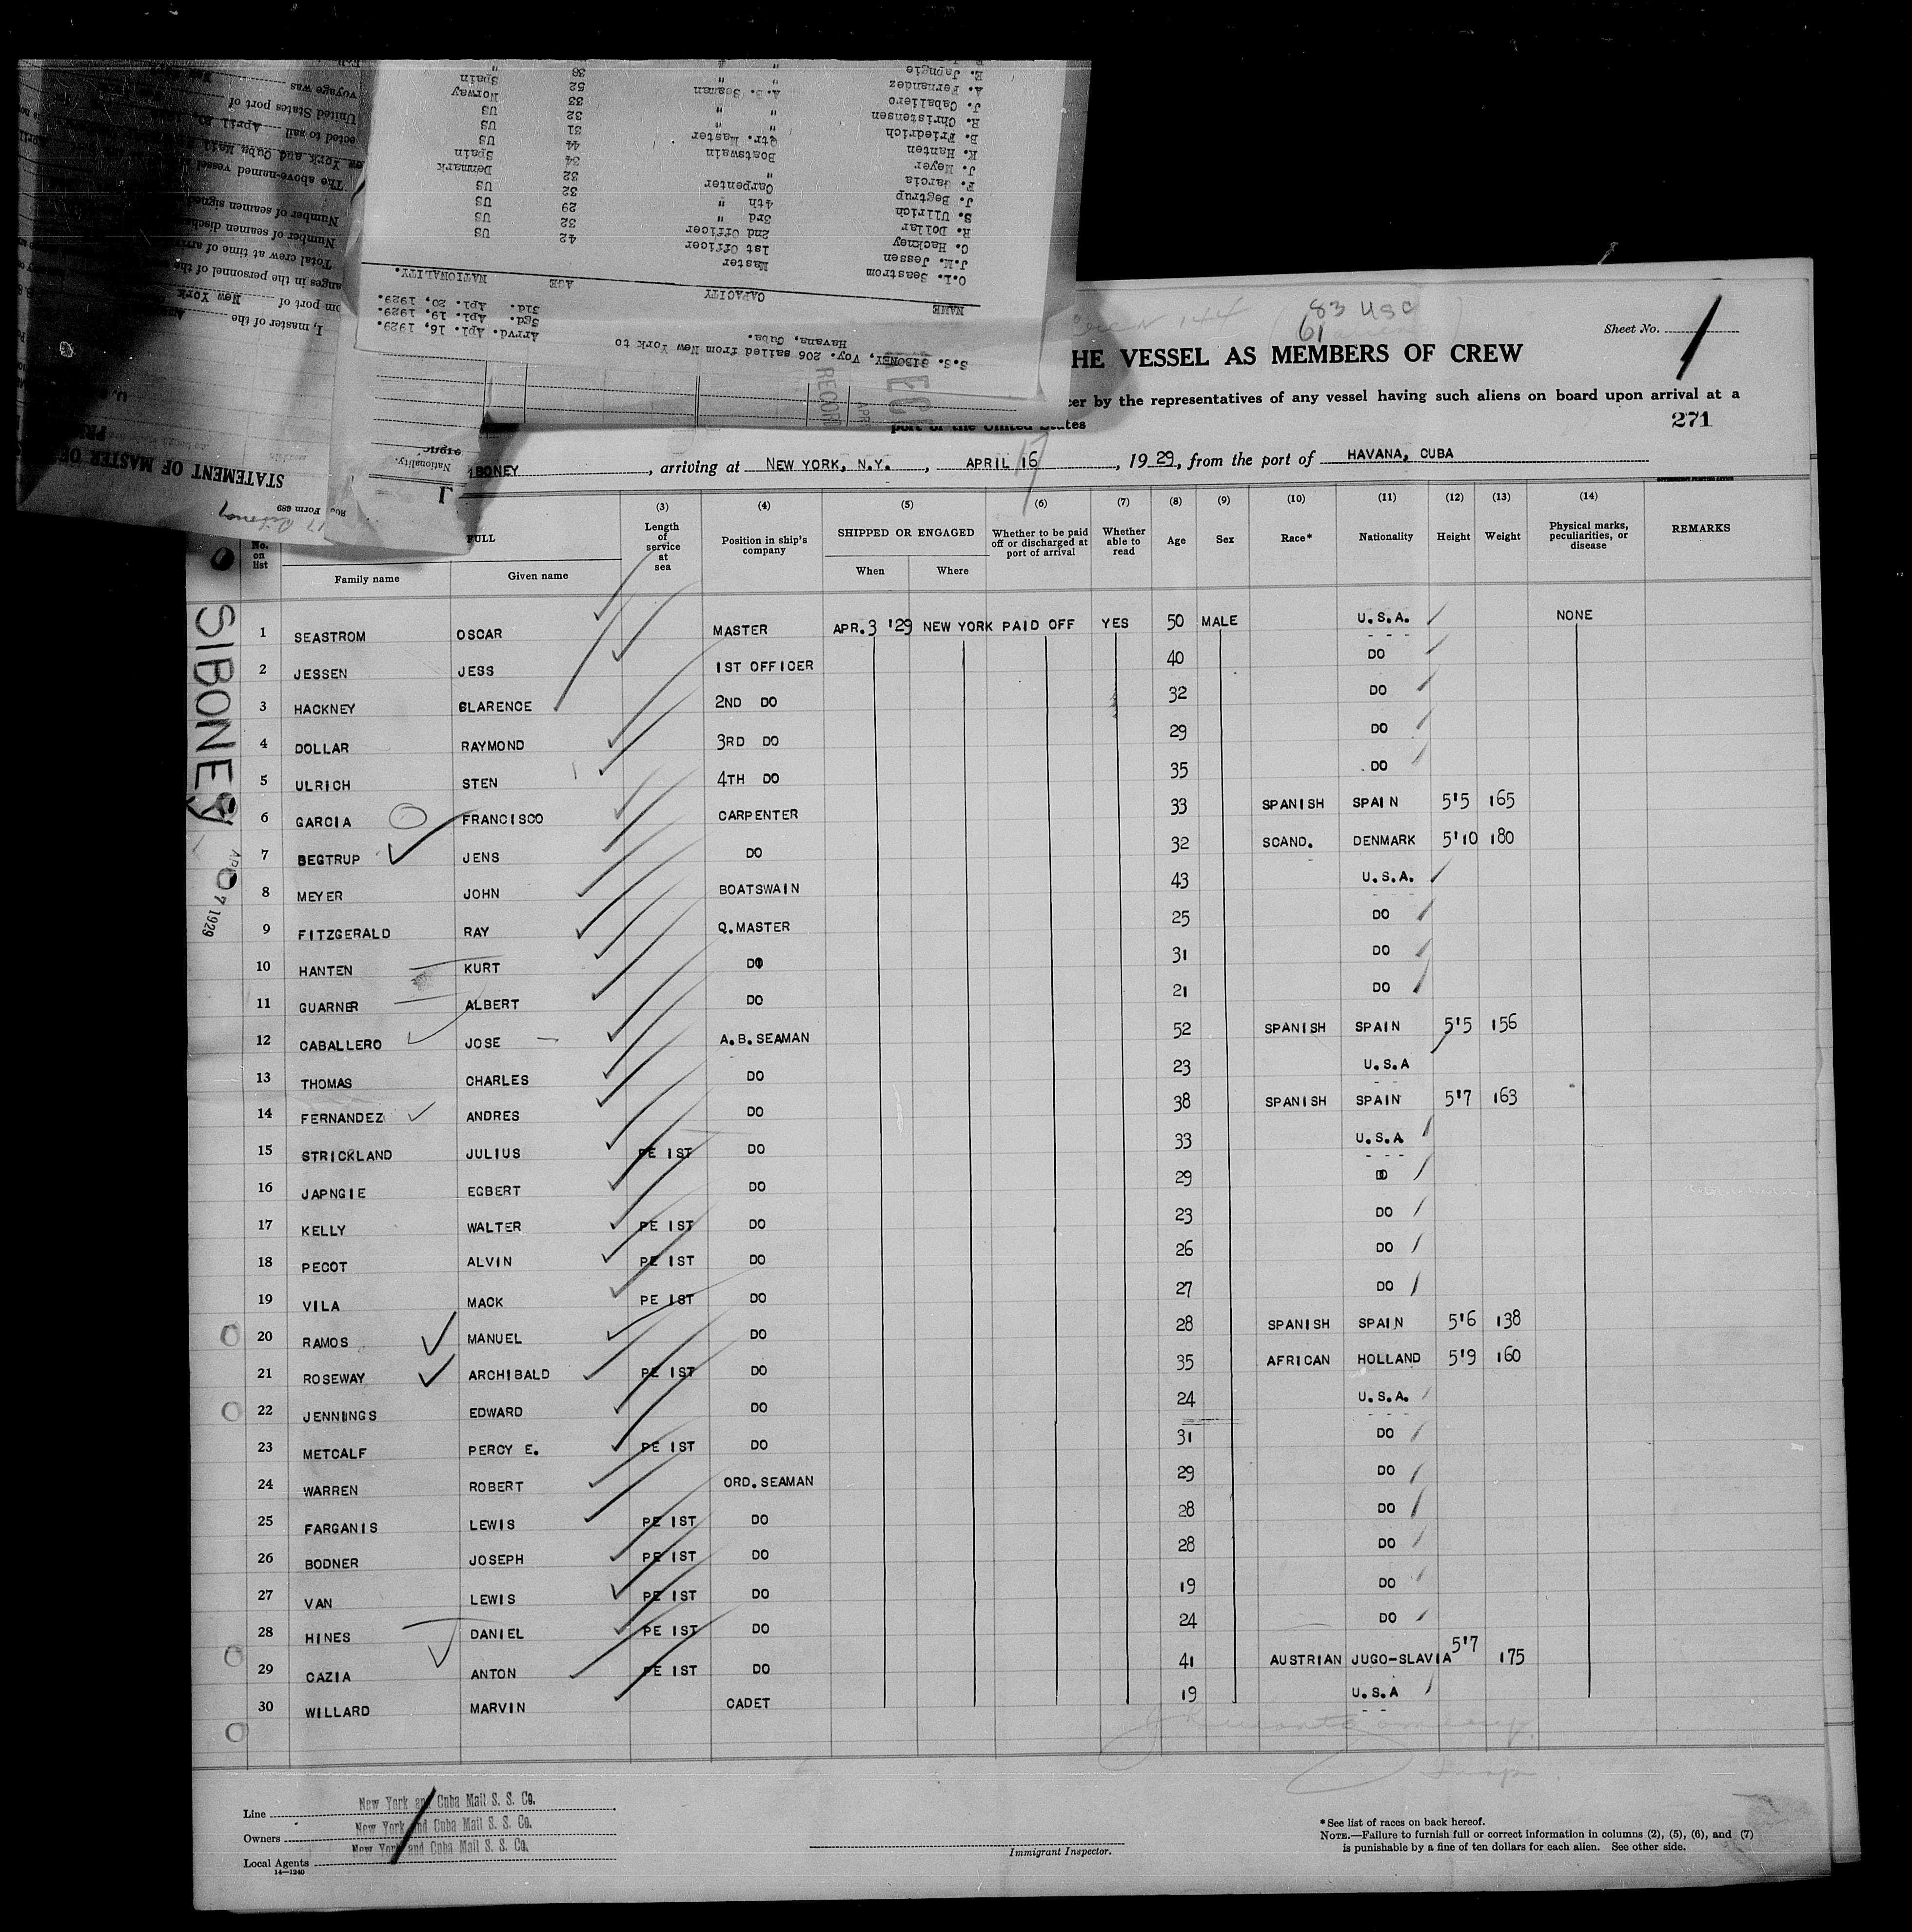 83 USC
61
Sheet No. 1
HE VESSEL AS MEMBERS OF CREW
cer by the representatives of any vessel having such aliens on board upon arrival at a
port of the United States
271
IBONEY, arriving at NEW YORK, N.Y., APRIL 16, 1929, from the port of HAVANA, CUBA
STATEMENT OF MASTER OF
Form 689
I, master of the
om port of New York
anges in the personnel of the
Total crew at time of arri
Number of seamen disch
Number of seamen signed
The above-named vessel
York and Cuba Mail
ected to sail April 20,
United States port of
voyage was New York
Nationality.
S.S. SIBONEY, Voy. 206 sailed from New York to
Havana, Cuba.
Arrvd. Apl. 16, 1929.
Sgd. Apl. 19, 1929.
Sld. Apl. 20, 1929.
NAME CAPACITY AGE NATIONALITY.
O.L. Seastrom Master
J.M. Jessen 1st Officer 42 US
C. Hackney 2nd Officer 32 US
R. Dollar 3rd " 29 US
S. Ullrich 4th " 32 US
J. Begtrup Carpenter 32 Denmark
F. Garcia " 34 Spain
J. Meyer Boatswain 44 US
K. Hanten Qtr. Master 31 US
B. Friedrich " 32 US
R. Christensen " 33 Norway
J. Caballero A.B. Seaman 52 Spain
A. Fernandez " 38 "
E. Japngie
RECOR
APR
SIBONEY
1929
No. on list
FULL
Family name Given name
(3) Length of service at sea
(4) Position in ship's company
(5) SHIPPED OR ENGAGED
When Where
(6) Whether to be paid off or discharged at port of arrival
(7) Whether able to read
(8) Age
(9) Sex
(10) Race*
(11) Nationality
(12) Height
(13) Weight
(14) Physical marks, peculiarities, or disease
REMARKS
1 SEASTROM OSCAR MASTER APR.3 '29 NEW YORK PAID OFF YES 50 MALE U.S.A. NONE
2 JESSEN JESS 1ST OFFICER 40 DO
3 HACKNEY CLARENCE 2ND DO 32 DO
4 DOLLAR RAYMOND 3RD DO 29 DO
5 ULRICH STEN 4TH DO 35 DO
6 GARCIA FRANCISCO CARPENTER 33 SPANISH SPAIN 5'5 165
7 BEGTRUP JENS DO 32 SCAND. DENMARK 5'10 180
8 MEYER JOHN BOATSWAIN 43 U.S.A.
9 FITZGERALD RAY Q.MASTER 25 DO
10 HANTEN KURT DO 31 DO
11 GUARNER ALBERT DO 21 DO
12 CABALLERO JOSE A.B.SEAMAN 52 SPANISH SPAIN 5'5 156
13 THOMAS CHARLES DO 23 U.S.A
14 FERNANDEZ ANDRES DO 38 SPANISH SPAIN 5'7 163
15 STRICKLAND JULIUS PE 1ST DO 33 U.S.A
16 JAPNGIE EGBERT DO 29 DO
17 KELLY WALTER PE 1ST DO 23 DO
18 PECOT ALVIN PE 1ST DO 26 DO
19 VILA MACK PE 1ST DO 27 DO
20 RAMOS MANUEL DO 28 SPANISH SPAIN 5'6 138
21 ROSEWAY ARCHIBALD PE 1ST DO 35 AFRICAN HOLLAND 5'9 160
22 JENNINGS EDWARD DO 24 U.S.A.
23 METCALF PERCY E. PE 1ST DO 31 DO
24 WARREN ROBERT ORD.SEAMAN 29 DO
25 FARGANIS LEWIS PE 1ST DO 28 DO
26 BODNER JOSEPH PE 1ST DO 28 DO
27 VAN LEWIS PE 1ST DO 19 DO
28 HINES DANIEL PE 1ST DO 24 DO
29 CAZIA ANTON PE 1ST DO 41 AUSTRIAN JUGO-SLAVIA 5'7 175
30 WILLARD MARVIN CADET 19 U.S.A
Line New York and Cuba Mail S. S. Co.
Owners New York and Cuba Mail S. S. Co.
Local Agents New York and Cuba Mail S. S. Co.
14—1240
Immigrant Inspector.
*See list of races on back hereof.
NOTE.—Failure to furnish full or correct information in columns (2), (5), (6), and (7)
is punishable by a fine of ten dollars for each alien. See other side.